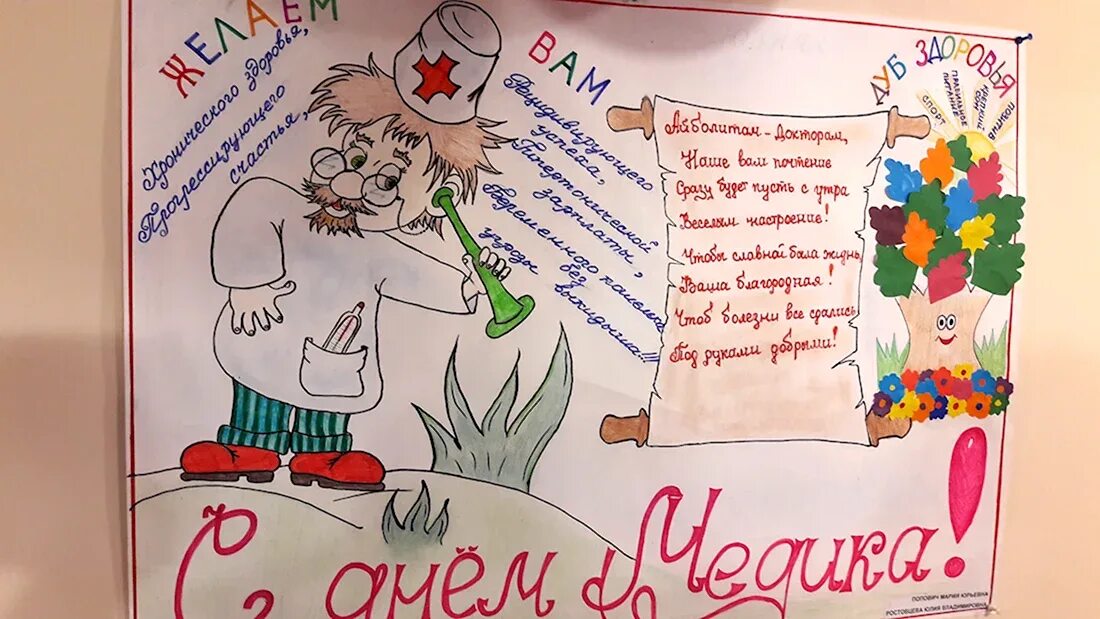 ЖЕЛАЕМ
ВАМ
Хронического здоровья,
Прогрессирующего
счастья,
Рецидивирующего
успеха,
Гипертонической
зарплаты,
беременного кошелька
без
угрозы
выкидыша!!!
Айболитам - Докторам,
Наше вам почтение
Сразу будет пусть с утра
Веселым настроение!
Чтобы славной была жизнь,
Ваша благородная!
Чтоб болезни все сдались
Под руками добрыми!
ДУБ ЗДОРОВЬЯ
СПОРТ
ПРАВИЛЬНОЕ
ПИТАНИЕ
КРЕПКИЙ
СОН
С днём Медика!
ПОПОВИЧ МАРИЯ ЮРЬЕВНА
РОСТОВЦЕВА ЮЛИЯ ВЛАДИМИРОВНА